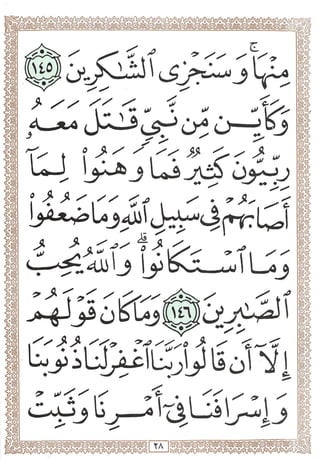 مِنْهَا ۚ وَسَنَجْزِى ٱلشَّٰكِرِينَ ١٤٥
وَكَأَيِّن مِّن نَّبِىٍّ قَٰتَلَ مَعَهُۥ
رِبِّيُّونَ كَثِيرٌ فَمَا وَهَنُوا۟ لِمَآ
أَصَابَهُمْ فِى سَبِيلِ ٱللَّهِ وَمَا ضَعُفُوا۟
وَمَا ٱسْتَكَانُوا۟ ۗ وَٱللَّهُ يُحِبُّ
ٱلصَّٰبِرِينَ ١٤٦ وَمَا كَانَ قَوْلَهُمْ
إِلَّآ أَن قَالُوا۟ رَبَّنَا ٱغْفِرْ لَنَا ذُنُوبَنَا
وَإِسْرَافَنَا فِىٓ أَمْرِنَا وَثَبِّتْ
٢٨